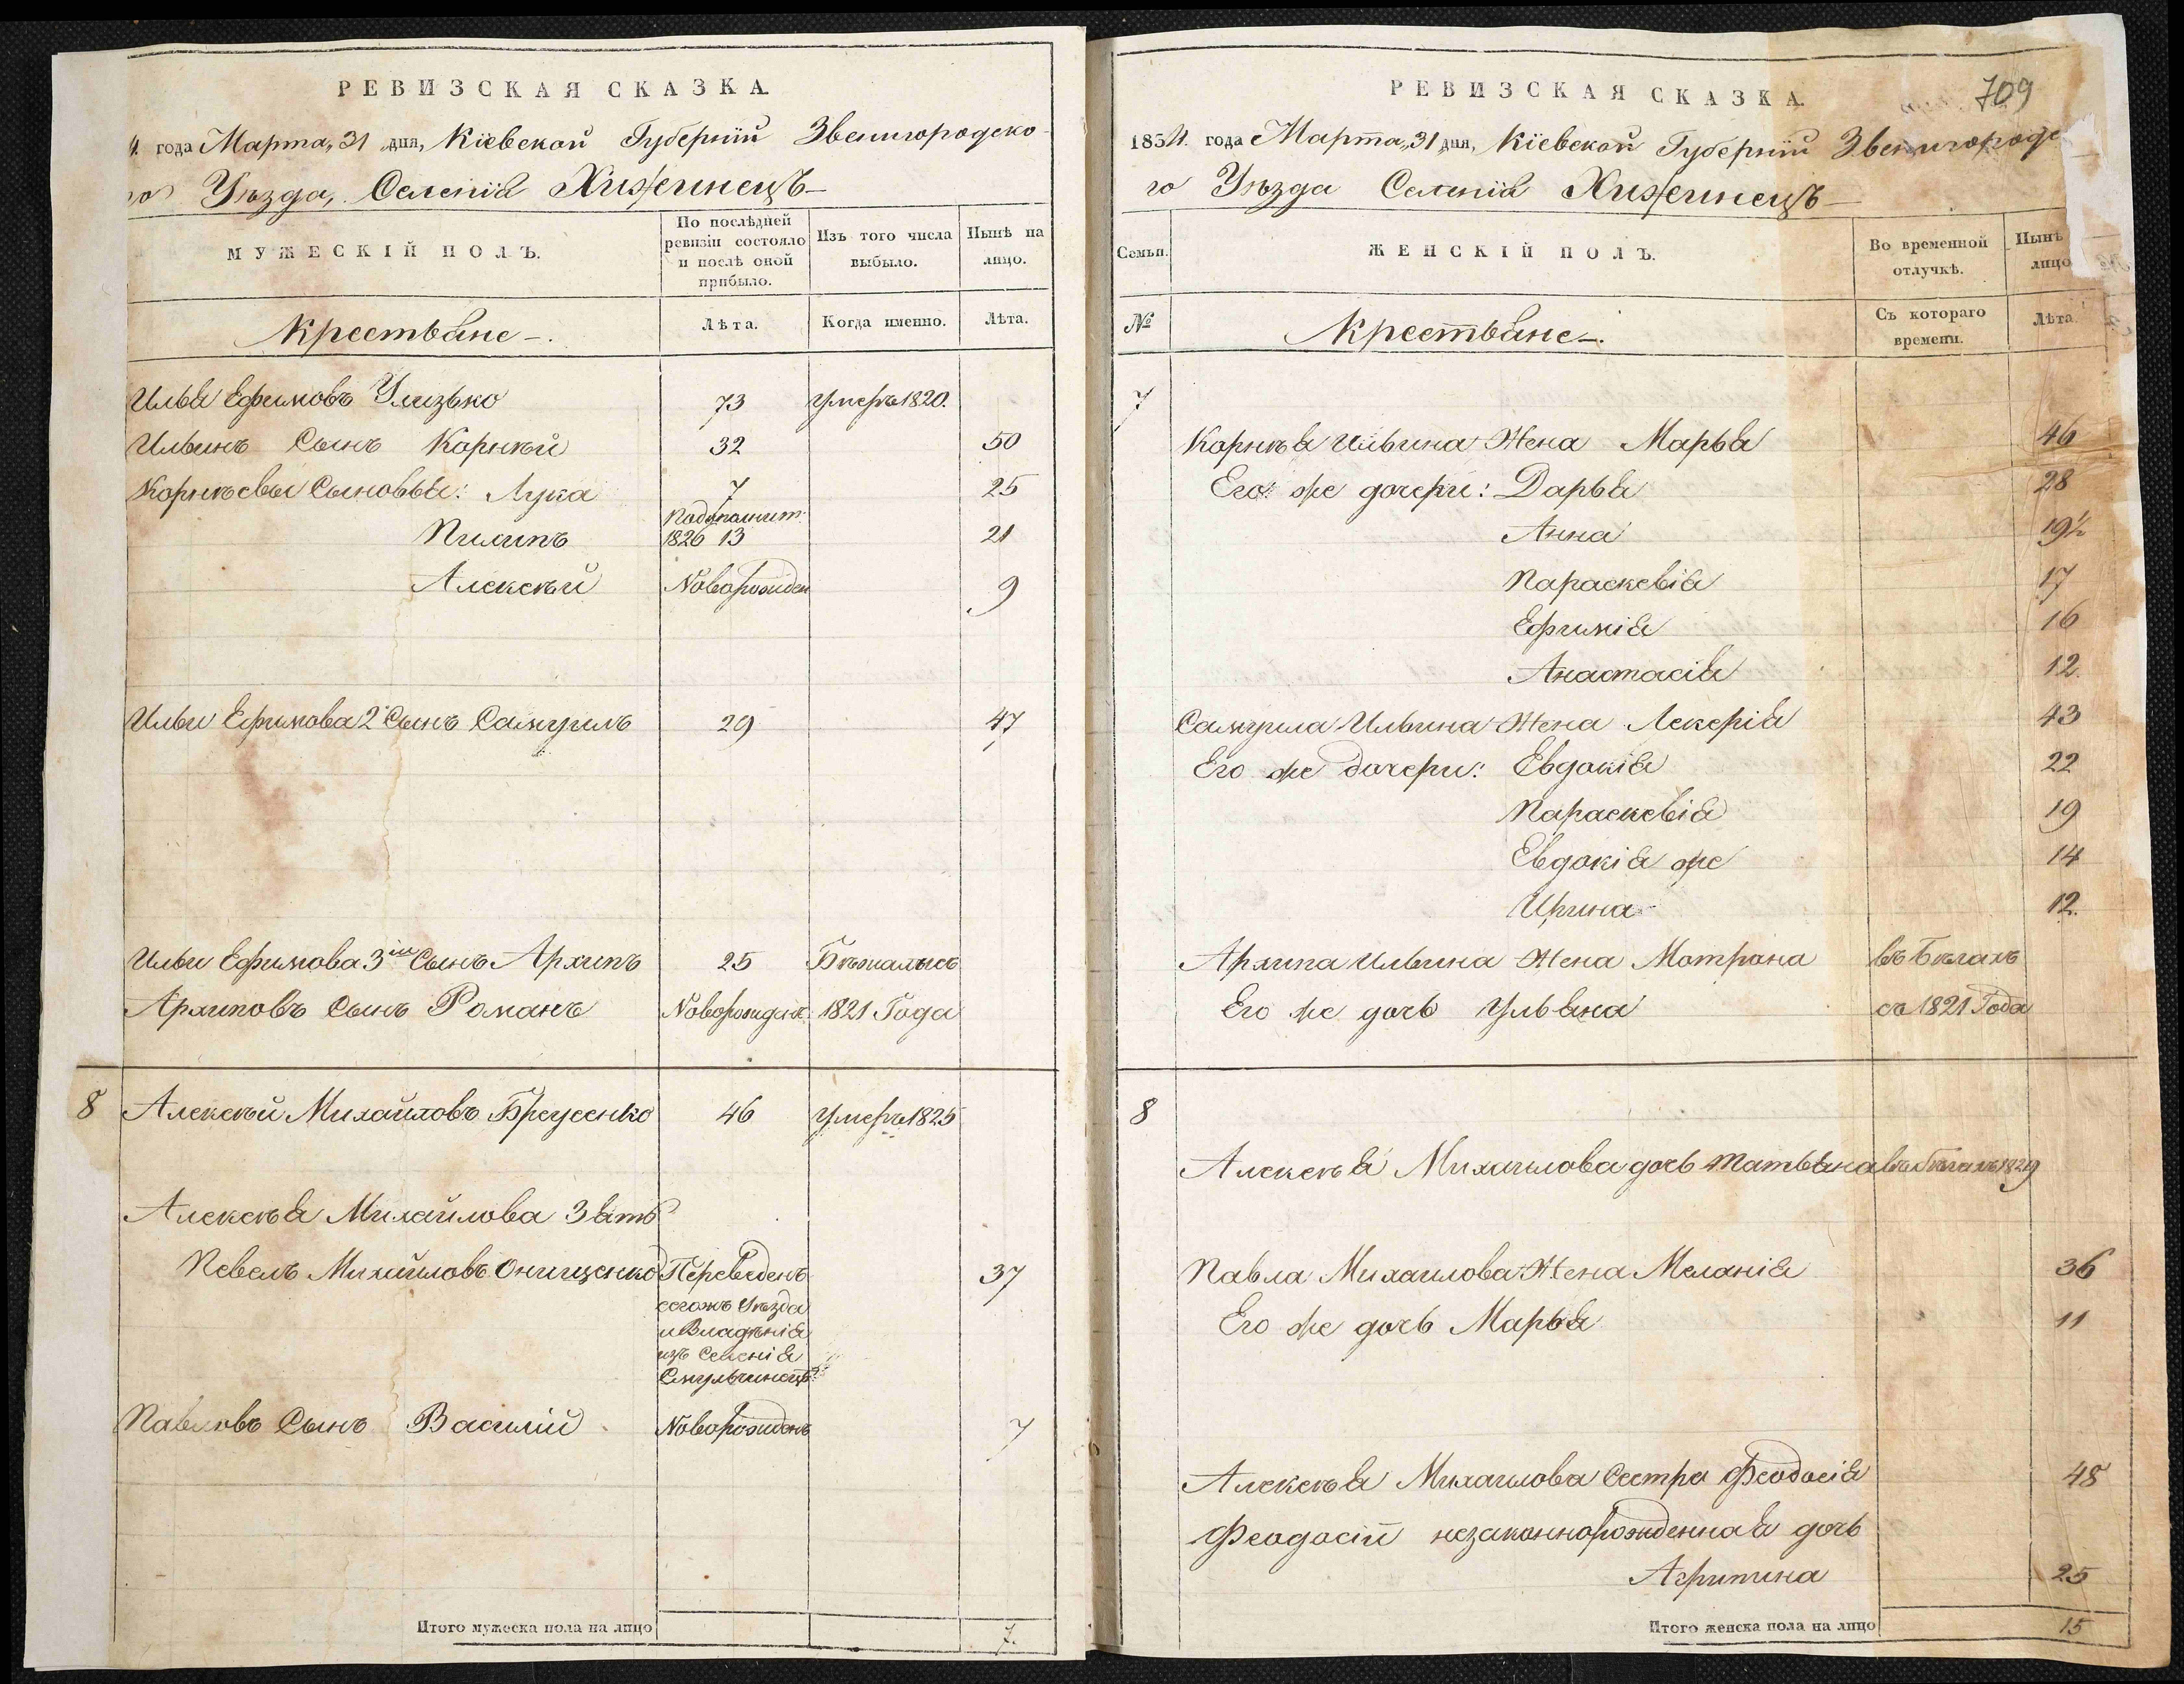 РЕВИЗСКАЯ СКАЗКА.
4. года Марта, 31 дня, Кіевской Губерніи Звенигородско-
го Уѣзда, Селенія Хижинецъ
МУЖЕСКІЙ ПОЛЪ.
По послѣдней ревизіи состояло и послѣ оной прибыло.
Изъ того числа выбыло.
Нынѣ на лицо.
Крестьяне
Лѣта.
Когда именно.
Лѣта.
Илья Ефимовъ Улизько 73 умеръ 1820.
Ильинъ Сынъ Корнѣй 32 50
Корнѣевы Сыновья: Лука 7 25
Пилипъ 1826 13 21
Алексѣй Новорожден 9
Ильи Ефимова 2 Сынъ Самуилъ 29 47
Ильи Ефимова 3ій Сынъ Архипъ 25 Бѣжалысь
Архиповъ Сынъ Романъ Новорожден. 1821 Года
8 Алексѣй Михайловъ 46 умеръ 1825
Алексѣя Михайлова Зять
Павелъ Михайловъ Онищенко Переведенъ 37
сегожъ Уѣзда
и Владѣнія
изъ Селенія
Павловъ Сынъ Василій Новорожденъ 7
Итого мужеска пола на лицо 7.
РЕВИЗСКАЯ СКАЗКА.
709
1834. года Марта, 31 дня, Кіевской Губерніи Звенигородс
го Уѣзда Селенія Хижинецъ
Семьи.
ЖЕНСКІЙ ПОЛЪ.
Во временной отлучкѣ.
Нынѣ лицо
№
Крестьяне.
Съ котораго времени.
Лѣта
7
Корнѣя Ильина Жена Марья 46
Его же дочери: Дарья 28
Анна 19½
Параскевія 17
Ефимія 16
Анастасія 12
Самуила Ильина Жена Лекерія 43
Его же дочери: Евдокія 22
Параскевія 19
Евдокія же 14
Ирина 12.
Архипа Ильина Жена Мотрона въ Бѣгахъ
Его же дочь Ульяна съ 1821 Года
8
Алексѣя Михайлова дочь Татьяна въ бѣгахъ 1829
Павла Михайлова Жена Меланія 36
Его же дочь Марья 11
Алексѣя Михайлова Сестра Феодосія 48
Феодосіи незаконнорожденная дочь
25
Итого женска пола на лицо 15